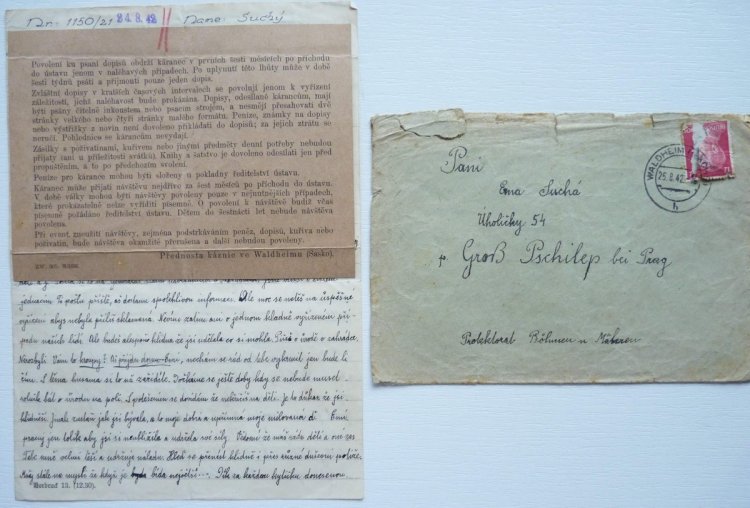 Nr. 1150/21 24.8.42 Name: Suchý
Povolení ku psaní dopisů obdrží káranec v prvních šesti měsících po příchodu
do ústavu jenom v naléhavých případech. Po uplynutí této lhůty může v době
šesti týdnů psáti a přijmouti pouze jeden dopis.
Zvláštní dopisy v kratších časových intervalech se povolují jenom k vyřízení
záležitostí, jichž naléhavost bude prokázána. Dopisy, odesílané kárancům, mají
býti psány čitelně inkoustem nebo psacím strojem, a nesmějí přesahovati dvě
stránky velkého nebo čtyři stránky malého formátu. Peníze, známky na dopisy
nebo výstřižky z novin není dovoleno přikládati do dopisů; za jejich ztrátu se
neručí. Pohlednice se kárancům nevydají.
Zásilky s poživatinami, kuřivem nebo jinými předměty denní potřeby nebudou
přijaty (ani u příležitosti svátků). Knihy a šatstvo je dovoleno odesílati jen před
propuštěním, a to po předchozím svolení.
Peníze pro kárance mohou býti složeny u pokladny ředitelství ústavu.
Káranec může přijati návštěvu nejdříve za šest měsíců po příchodu do ústavu.
V době války mohou býti návštěvy povoleny pouze v nejnutnějších případech,
které prokazatelně nelze vyříditi písemně. O povolení k návštěvě budiž včas
písemně požádáno ředitelství ústavu. Dětem do šestnácti let nebude návštěva
povolena.
Při event. zneužití návštěvy, zejména podstrkáváním peněz, dopisů, kuřiva nebo
poživatin, bude návštěva okamžitě přerušena a další nebudou povoleny.
Přednosta káznice ve Waldheimu (Sasko).
jednacím. Tu pošlu příště, až dostanu spolehlivou informaci. Ale moc se netěš na úspěšné
vyřízení abys nebyla příliš sklamaná. Nevím zatím ani o jednom kladně vyřízeném pří-
padu našich lidí. Ale budeš alespoň klidná že jsi udělala co si mohla. Píšeš o úrodě a zahrádce.
Nerozbyli Vám to kroupy? Až přijdu domu Emi, nechám se rád od tebe vykrmit jen bude li
čím. I těma husama si to už zařídíte. Dočkáme se ještě doby kdy se nebude muset
rolník bát o úrodu na poli. S potěšením se dovídám že neležíš na děti. Je to důkaz že jsi
klidnější. Jenli zustaň jak jsi bývala, a to moje dobrá a upřímná moje milovaná. Emi
pracuj jen tolik aby jsi si neublížila a udržela své síly. Vědomí že máš zase děti a one zas
Tebe mně velmi těší a udržuje náladu. Hleď se přenést klidně i přes různé duševní potíže.
Měj stále na mysli že když je bída největší... Dík za každou kytičku donesenou.
Vordruck 13. (12.30)
WALDHEIM
25.8.42
h
Paní
Ema Suchá
Uholičky 54
p. Groß Pschilep bei Prag
Protektorat Böhmen u Mähren